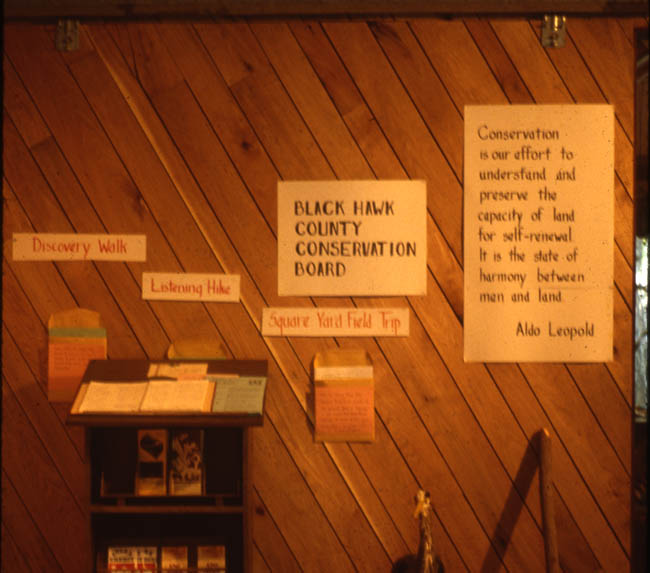 Discovery Walk
Listening Hike
Square Yard Field Trip
BLACK HAWK
COUNTY
CONSERVATION
BOARD
Conservation
is our effort to
understand and
preserve the
capacity of land
for self-renewal.
It is the state of
harmony between
men and land.
Aldo Leopold